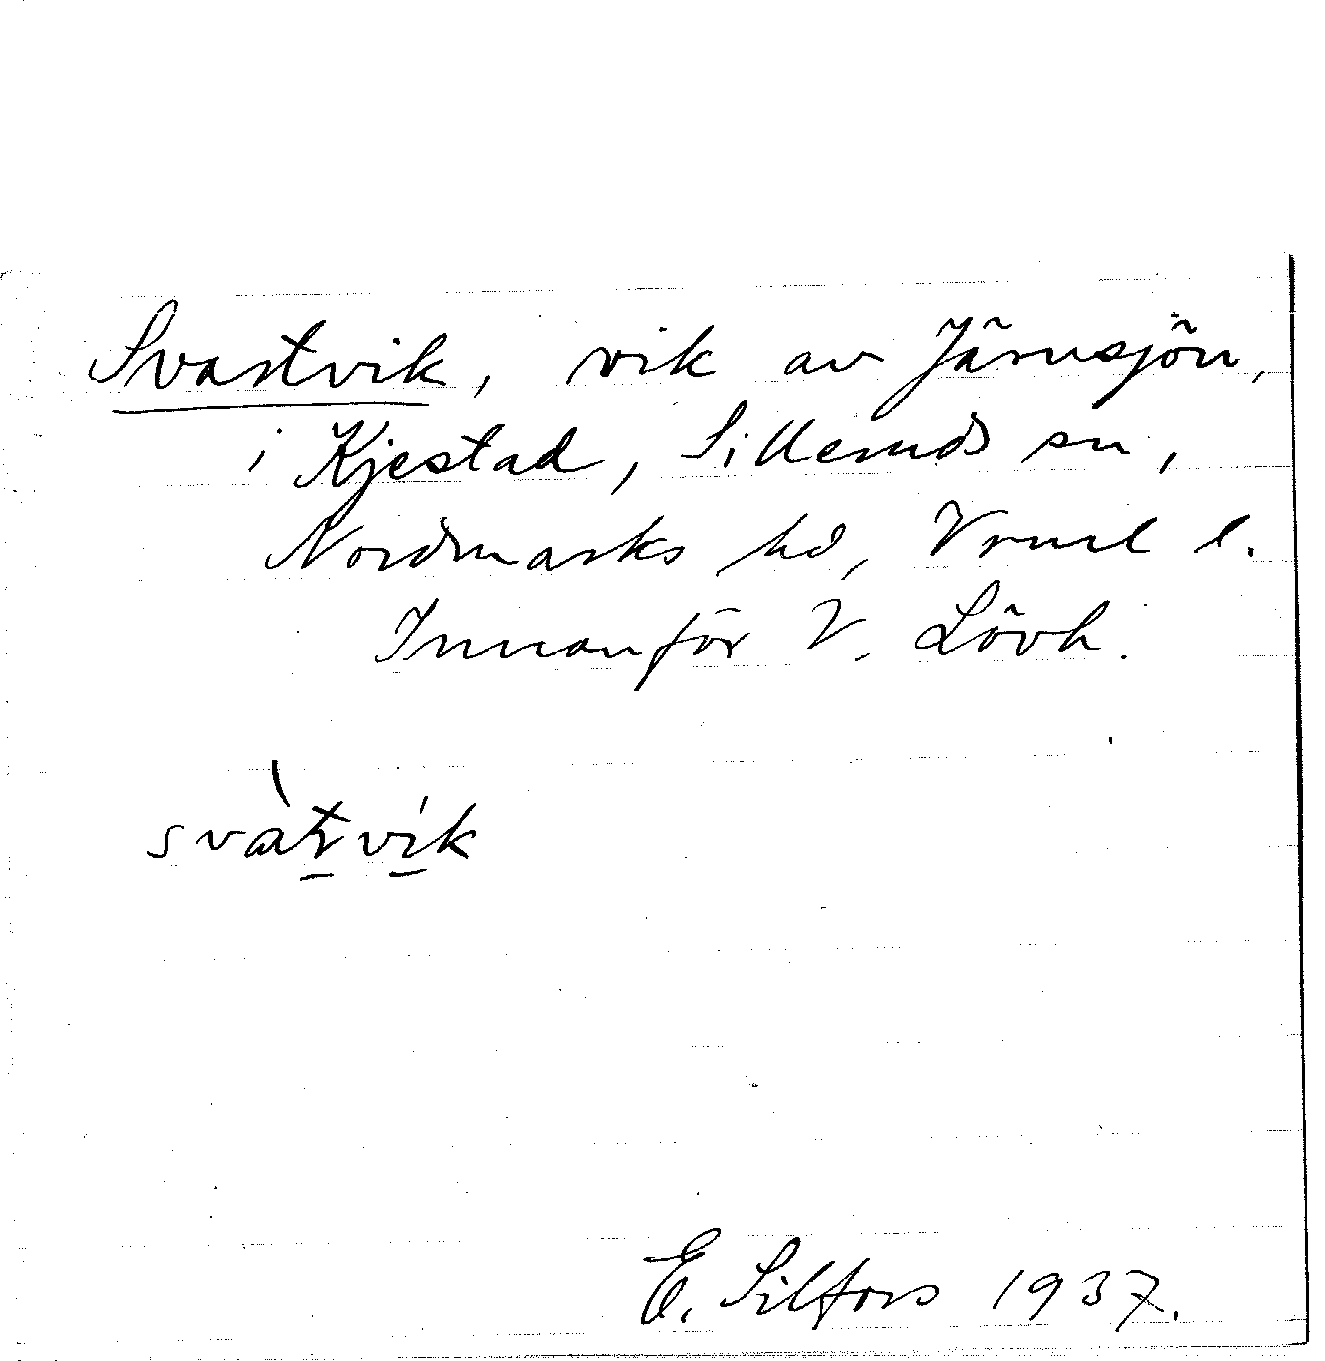 Svartvik, vik av Järnsjön,
i Kjestad, Silleruds sn,
Nordmarks hd, Vrml l.
Innanför V. Lövh.
svàtvík
E. Silfors 1937.